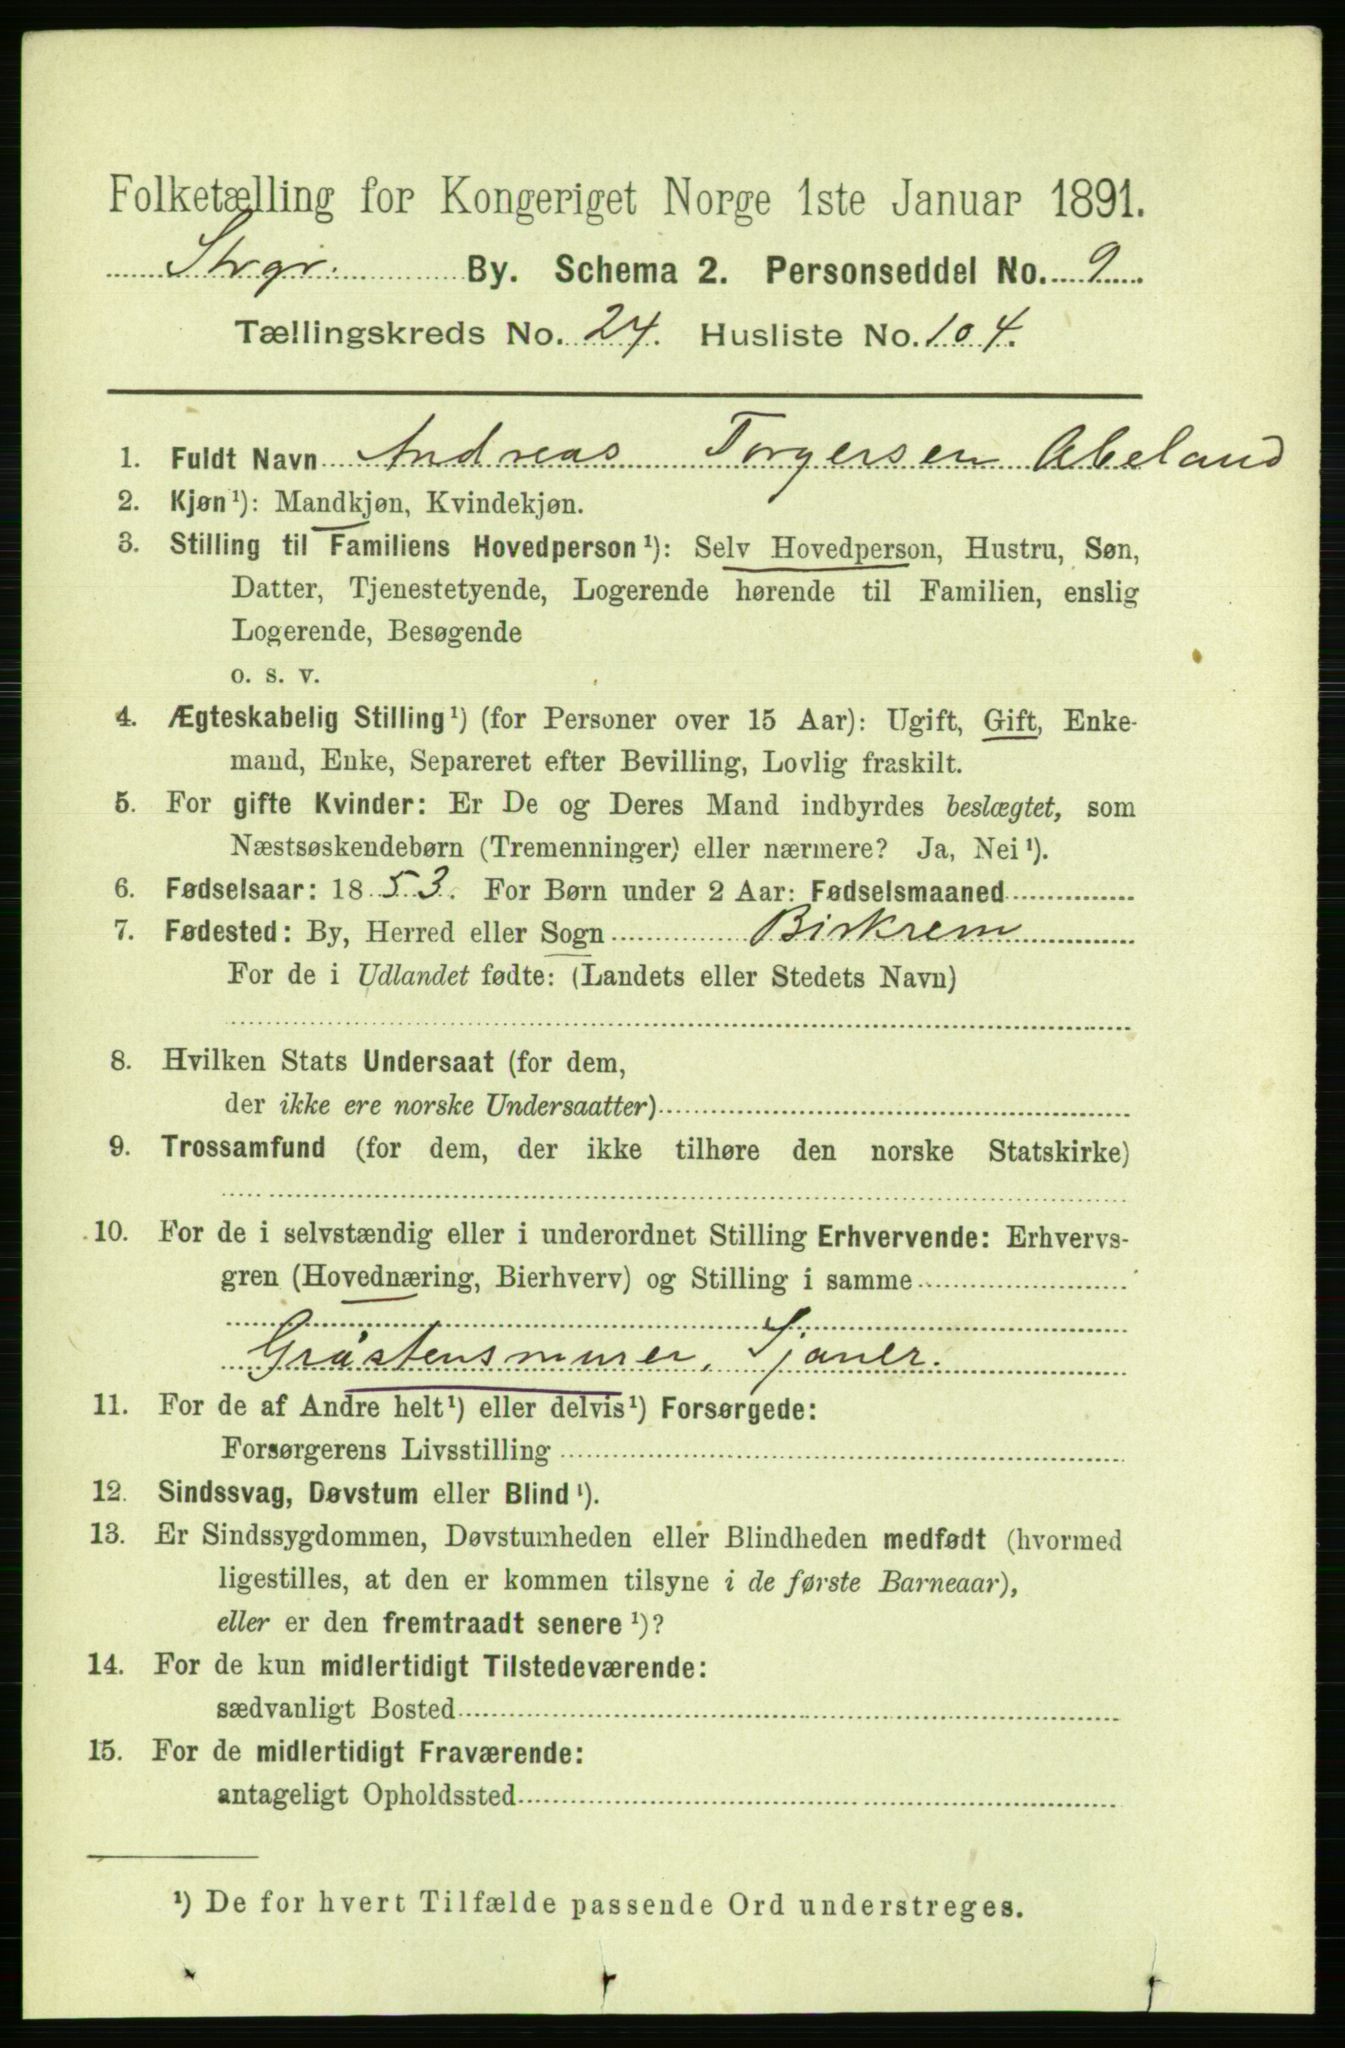 Folketælling for Kongeriget Norge 1ste Januar 1891.
Strgr. By. Schema 2. Personseddel No. 9
Tællingskreds No. 24. Husliste No. 104.
1. Fuldt Navn Andreas Torgersen Abeland
2. Kjøn¹): Mandkjøn, Kvindekjøn.
3. Stilling til Familiens Hovedperson¹): Selv Hovedperson, Hustru, Søn,
Datter, Tjenestetyende, Logerende hørende til Familien, enslig
Logerende, Besøgende
o. s. v.
4. Ægteskabelig Stilling¹) (for Personer over 15 Aar): Ugift, Gift, Enke-
mand, Enke, Separeret efter Bevilling, Lovlig fraskilt.
5. For gifte Kvinder: Er De og Deres Mand indbyrdes beslægtet, som
Næstsøskendebørn (Tremenninger) eller nærmere? Ja, Nei¹).
6. Fødselsaar: 1853. For Børn under 2 Aar: Fødselsmaaned
7. Fødested: By, Herred eller Sogn Birkrem
For de i Udlandet fødte: (Landets eller Stedets Navn)
8. Hvilken Stats Undersaat (for dem,
der ikke ere norske Undersaatter)
9. Trossamfund (for dem, der ikke tilhøre den norske Statskirke)
10. For de i selvstændig eller i underordnet Stilling Erhvervende: Erhvervs-
gren (Hovednæring, Bierhverv) og Stilling i samme
Gråstensmurer, Sjauer.
11. For de af Andre helt¹) eller delvis¹) Forsørgede:
Forsørgerens Livsstilling
12. Sindssvag, Døvstum eller Blind¹).
13. Er Sindssygdommen, Døvstumheden eller Blindheden medfødt (hvormed
ligestilles, at den er kommen tilsyne i de første Barneaar),
eller er den fremtraadt senere¹)?
14. For de kun midlertidigt Tilstedeværende:
sædvanligt Bosted
15. For de midlertidigt Fraværende:
antageligt Opholdssted
¹) De for hvert Tilfælde passende Ord understreges.